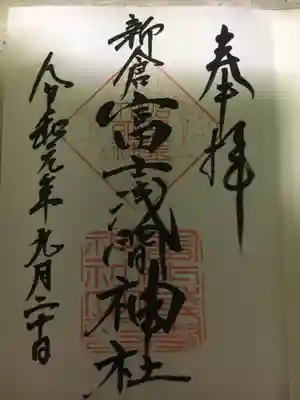 奉拝
新倉
富士浅間神社
令和元年九月二十日